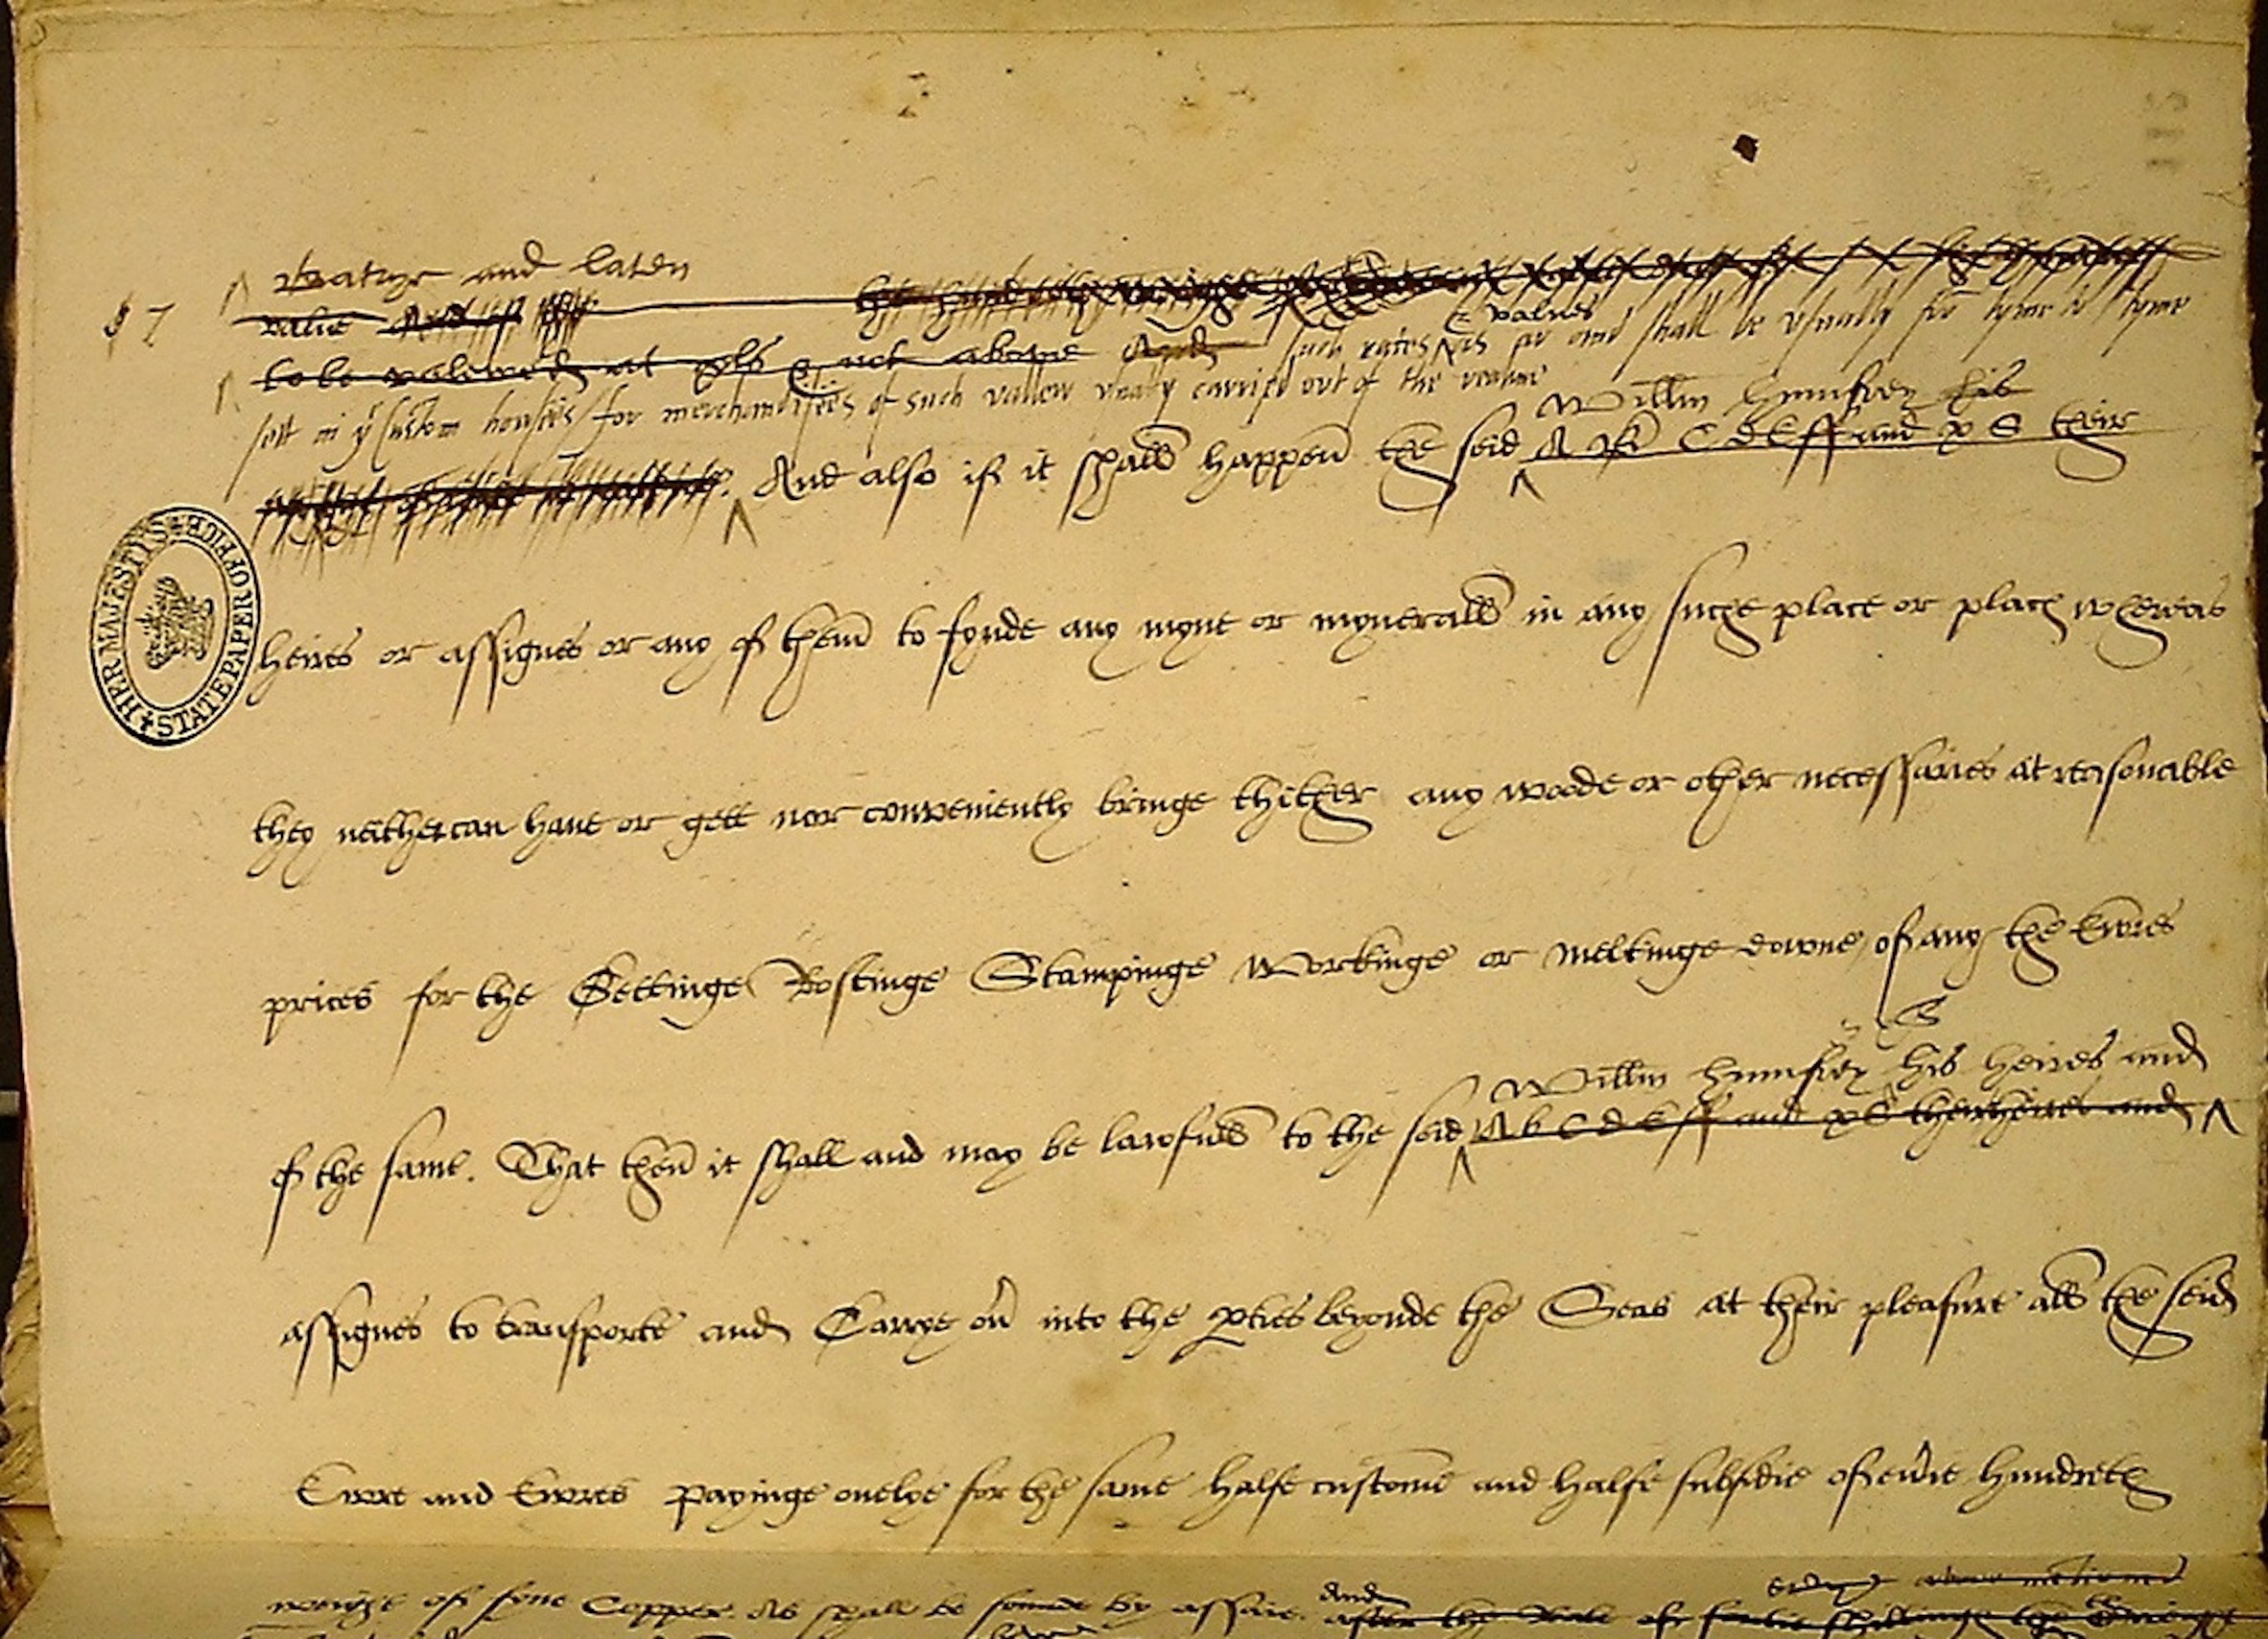 Batrye and laten
value
& values
to be valewed at xls & not above And such rates as ar and shall be usually fro tyme to tyme
sett in yͤ Custom houses / for merchandisees of such vallew usualy carried out of the realme
Willm Humfrey his
And also if it shall happen the seid A B C D E ff and x S their
heires or assignes or any of them to fynde any myne or mynerall in any suche place or places whereas
they neither can have or gett nor conveniently bringe thither any woode or other necessaries at reasonable
prices for the Gettinge Rostinge Stampinge Workinge or meltinge downe of any the Ewres
S
Willm Humfrey his heires and
of the same. That then it shall and may be lawfull to the seid A b C d E ff and x S their heires and
assignes to transporte and Carrye ov̄ into the p̱ties beyonde the Seas at their pleasure all the seid
Ewre and Ewres payinge onelye for the same halfe custome and halfe subsidie of ev̄ie hundreth
and
weight of fyne Copper As shall be founde by assaie. after the Rate of fortie shillinge the
HER MAJESTY'S STATE PAPER OFFICE